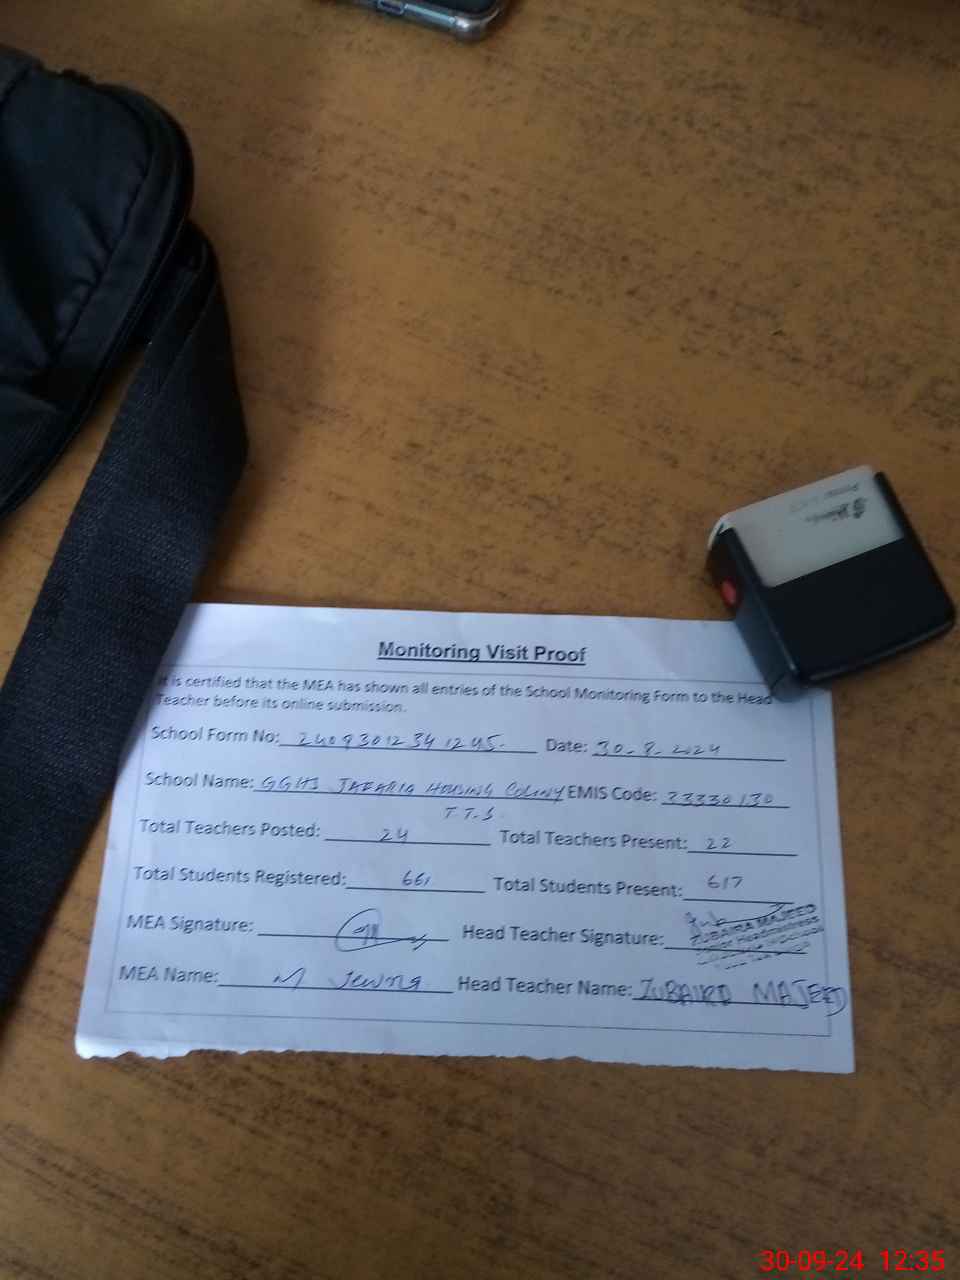 Monitoring Visit Proof
It is certified that the MEA has shown all entries of the School Monitoring Form to the Head
Teacher before its online submission.
School Form No: 2409301234 1245. Date: 30-9-2024
School Name: GGHS JAFARIA HOUSING COLONY EMIS Code: 33330130
T.T.S
Total Teachers Posted: 24 Total Teachers Present: 22
Total Students Registered: 661 Total Students Present: 617
MEA Signature: Head Teacher Signature:
ZUBAIRA MAJEED
Senior Headmistress
MEA Name: M Head Teacher Name: ZUBAIRA MAJEED
30-09-24 12:35